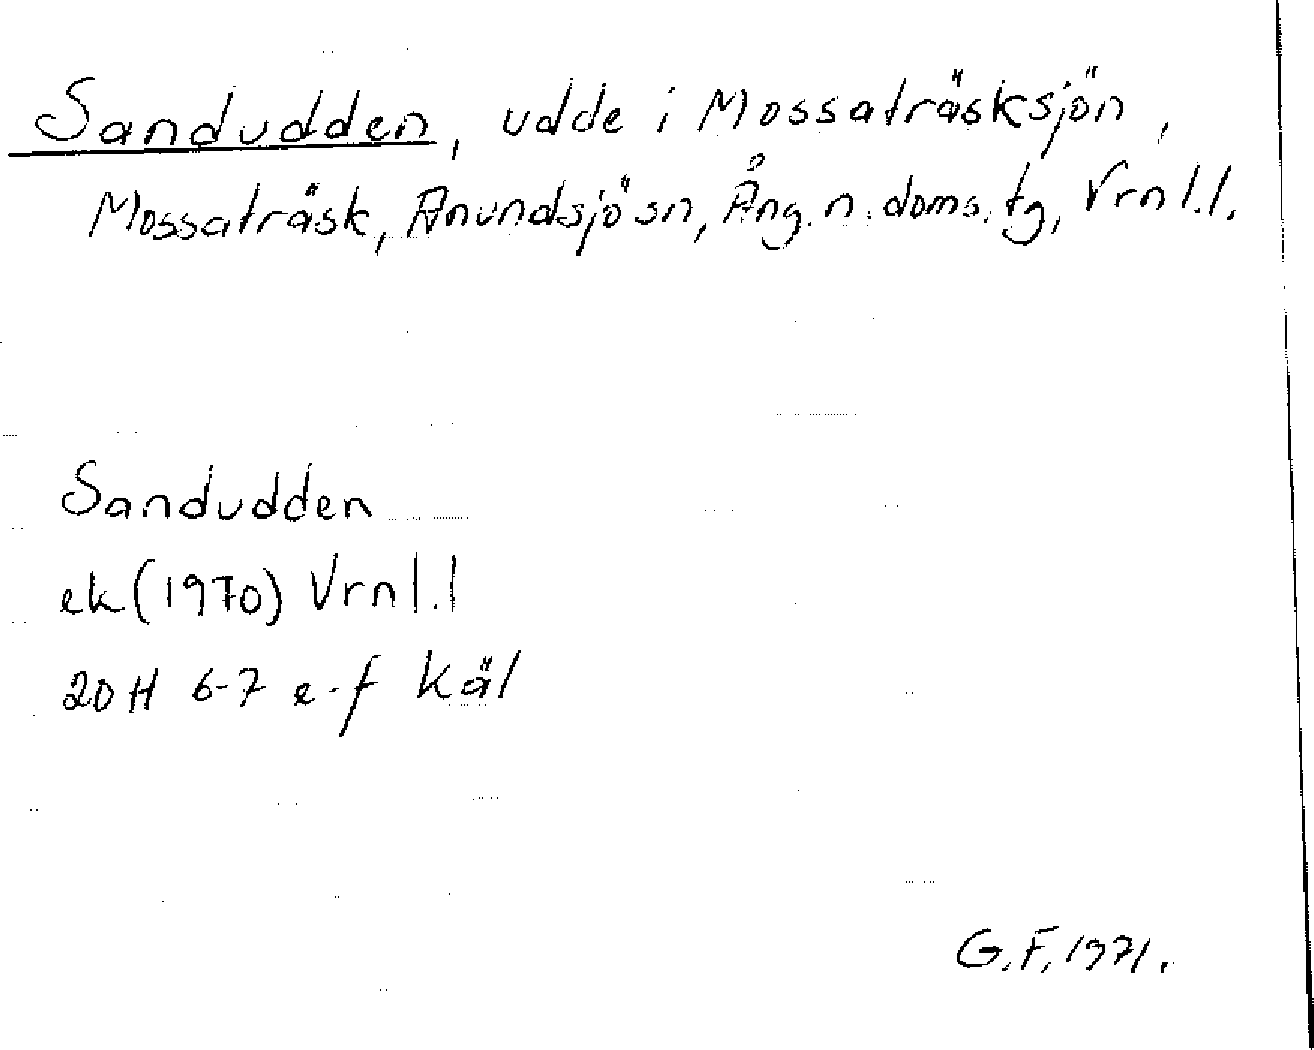 Sandudden, udde i Mossaträsksjön,
Mossaträsk, Anundsjö sn, Ång. n. doms. tg, Vrnl.l.
Sandudden
ek (1970) Vrnl.l
20 H 6-7 e-f Käl
G.F. 1971.